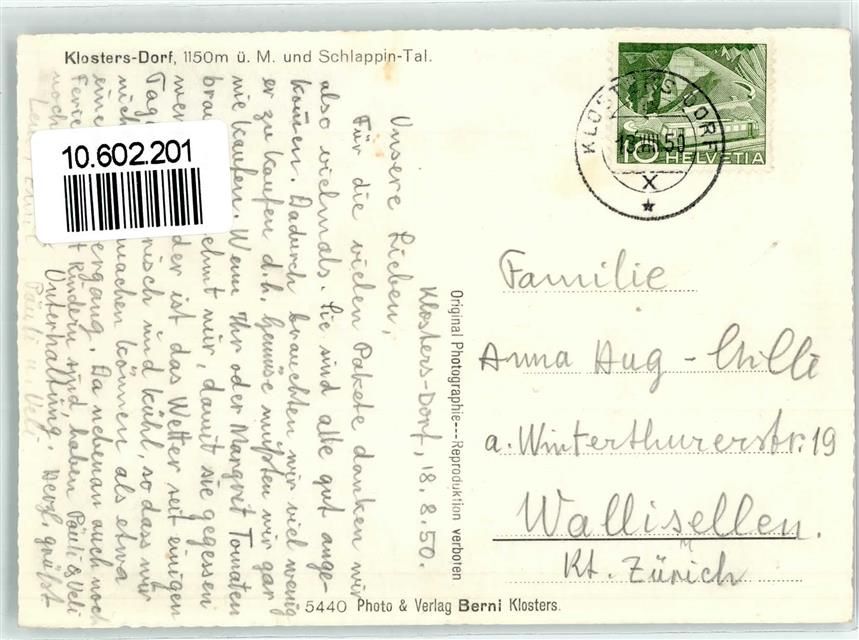 Klosters-Dorf, 1150m ü. M. und Schlappin-Tal.
Klosters-Dorf, 18. 8. 50.
Unsere Lieben,
Für die vielen Pakete danken wir
also vielmals. Sie sind alle gut ange-
kommen. Dadurch brauchten wir viel wenig
er zu kaufen d.h. Gemüse mußten wir gar
nie kaufen. Wenn Ihr oder Margrit Tomaten
brau ehmt nur, damit sie gegessen
wer der ist das Wetter seit einigen
Tage nisch und kühl, so dass wir
nich machen können als etwa
eine ergang. Da nebenan auch noch
Ferie t Kindern sind, haben Päuli & Ueli
noch Unterhaltung. Herzl. grüßt
Päuli u. Ueli
10.602.201
Original Photographie---Reproduktion verboten
KLOSTERS DORF
18.VIII.50
X
10 HELVETIA
Familie
Anna Hug-
a. Winterthurerstr. 19
Wallisellen.
Kt. Zürich
5440 Photo & Verlag Berni Klosters.